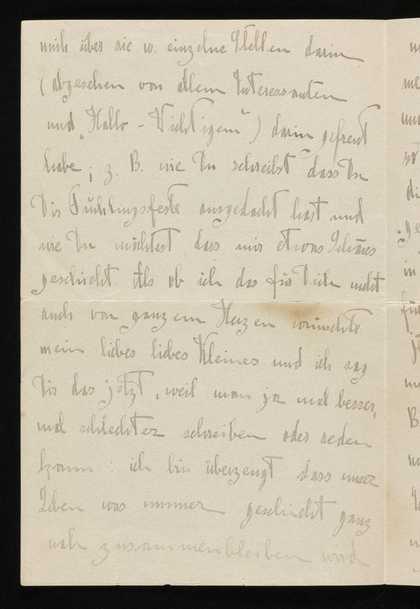 mich über sie u. einzelne Stellen darin
(abgesehen von allem Interessanten
und „Hallo - Wichtigem") darin gefreut
habe; z. B. wie Du schreibst dass Du
Dir Frühlingsfeste ausgedacht hast und
wie Du möchtest dass mir etwas Schönes
geschieht. Als ob ich das für Dich nicht
auch von ganzem Herzen wünschte
mein liebes liebes Kleines und ich sag
Dir das jetzt, weil man ja mal besser,
mal schlechter schreiben oder reden
kann: ich bin überzeugt dass unser
Leben was immer geschieht ganz
nah zusammenbleiben wird